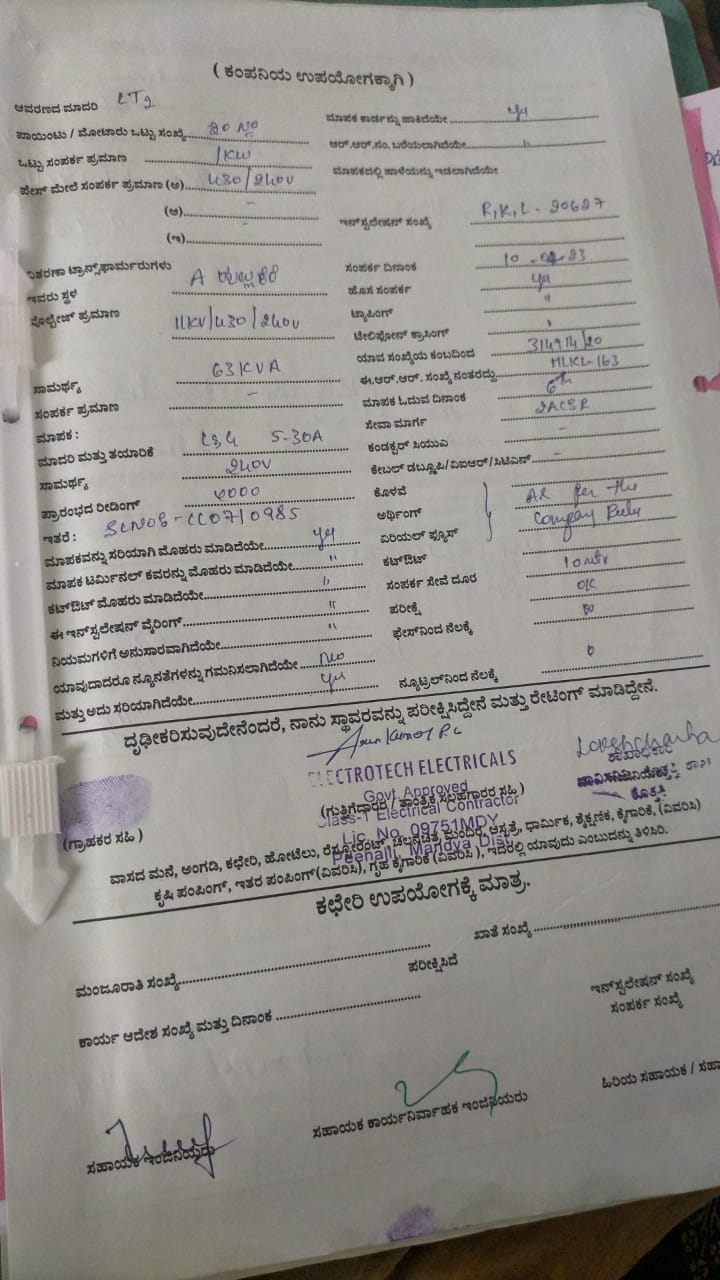 ( ಕಂಪನಿಯ ಉಪಯೋಗಕ್ಕಾಗಿ )
ಆವರಣದ ಮಾದರಿ LT2
ಮಾಪಕ ಕಾರ್ಡನ್ನು ಹಾಕಿದೆಯೇ
ಪಾಯಿಂಟು / ಮೋಟಾರು ಒಟ್ಟು ಸಂಖ್ಯೆ 20 No
ಆರ್.ಆರ್.ಸಂ. ಬರೆಯಲಾಗಿದೆಯೇ "
ಒಟ್ಟು ಸಂಪರ್ಕ ಪ್ರಮಾಣ 1KW
ಮಾಪಕದಲ್ಲಿ ಹಾಳೆಯನ್ನು ಇಡಲಾಗಿದೆಯೇ
ಫೇಸ್ ಮೇಲೆ ಸಂಪರ್ಕ ಪ್ರಮಾಣ (ಅ) 430/240V
(ಆ) -
ಇನ್‌ಸ್ಟಲೇಷನ್ ಸಂಖ್ಯೆ R,K,L - 20627
(ಇ) -
ವಿತರಣಾ ಟ್ರಾನ್ಸ್‌ಫಾರ್ಮರುಗಳು
ಸಂಪರ್ಕ ದಿನಾಂಕ 10 - 04 - 23
ಇವರು ಸ್ಥಳ A
ಹೊಸ ಸಂಪರ್ಕ
ವೊಲ್ಟೇಜ್ ಪ್ರಮಾಣ 11KV/430/240V
ಟ್ಯಾಪಿಂಗ್ "
ಟೆಲಿಫೋನ್ ಕ್ರಾಸಿಂಗ್
ಯಾವ ಸಂಖ್ಯೆಯ ಕಂಬದಿಂದ
ಸಾಮರ್ಥ್ಯ 63KVA
ಈ.ಆರ್.ಆರ್. ಸಂಖ್ಯೆ ನಂತರದ್ದು HLKL-163
ಸಂಪರ್ಕ ಪ್ರಮಾಣ -
ಮಾಪಕ ಓದುವ ದಿನಾಂಕ 6th
ಮಾಪಕ :
ಸೇವಾ ಮಾರ್ಗ 2ACSR
ಮಾದರಿ ಮತ್ತು ತಯಾರಿಕೆ 5-30A
ಕಂಡಕ್ಟರ್ ಸಿಯುಎ -
ಸಾಮರ್ಥ್ಯ 240V
ಕೇಬಲ್ ಡಬ್ಲೂಪಿ/ವಿಐಆರ್/ಸಿಟಿಎಸ್ -
ಪ್ರಾರಂಭದ ರೀಡಿಂಗ್ 0000
ಕೊಳವೆ
ಇತರೆ :
ಅರ್ಥಿಂಗ್ As per the
ಮಾಪಕವನ್ನು ಸರಿಯಾಗಿ ಮೊಹರು ಮಾಡಿದೆಯೇ
ಏರಿಯಲ್ ಫ್ಯೂಸ್ Company Rules
ಮಾಪಕ ಟರ್ಮಿನಲ್ ಕವರನ್ನು ಮೊಹರು ಮಾಡಿದೆಯೇ "
ಕಟ್‌ಔಟ್
ಕಟ್‌ಔಟ್ ಮೊಹರು ಮಾಡಿದೆಯೇ "
ಸಂಪರ್ಕ ಸೇವೆ ದೂರ 10 mtr
ಈ ಇನ್‌ಸ್ಟಲೇಷನ್ ವೈರಿಂಗ್ "
ಪರೀಕ್ಷೆ OK
ನಿಯಮಗಳಿಗೆ ಅನುಸಾರವಾಗಿದೆಯೇ "
ಫೇಸ್‌ನಿಂದ ನೆಲಕ್ಕೆ
ಯಾವುದಾದರೂ ನ್ಯೂನತೆಗಳನ್ನು ಗಮನಿಸಲಾಗಿದೆಯೇ No
ಮತ್ತು ಅದು ಸರಿಯಾಗಿದೆಯೇ
ನ್ಯೂಟ್ರಲ್‌ನಿಂದ ನೆಲಕ್ಕೆ 0
ದೃಢೀಕರಿಸುವುದೇನೆಂದರೆ, ನಾನು ಸ್ಥಾವರವನ್ನು ಪರೀಕ್ಷಿಸಿದ್ದೇನೆ ಮತ್ತು ರೇಟಿಂಗ್ ಮಾಡಿದ್ದೇನೆ.
ELECTROTECH ELECTRICALS
Govt Approved
(ಗುತ್ತಿಗೆದಾರರ / ತಾಂತ್ರಿಕ ಸಲಹಾಗಾರರ ಸಹಿ )
Class-1 Electrical Contractor
Lic. No. 09751MDY
(ಗ್ರಾಹಕರ ಸಹಿ )
Peehalli, Mandya Dist
ವಾಸದ ಮನೆ, ಅಂಗಡಿ, ಕಛೇರಿ, ಹೋಟೆಲು, ರೆಸ್ಟೋರೆಂಟ್, ಚಲನಚಿತ್ರ ಮಂದಿರ, ಆಸ್ಪತ್ರೆ, ಧಾರ್ಮಿಕ, ಶೈಕ್ಷಣಿಕ, ಕೈಗಾರಿಕೆ, (ವಿವರಿಸಿ)
ಕೃಷಿ ಪಂಪಿಂಗ್, ಇತರ ಪಂಪಿಂಗ್(ವಿವರಿಸಿ), ಗೃಹ ಕೈಗಾರಿಕೆ (ವಿವರಿಸಿ ), ಇದರಲ್ಲಿ ಯಾವುದು ಎಂಬುದನ್ನು ತಿಳಿಸಿರಿ.
ಕಛೇರಿ ಉಪಯೋಗಕ್ಕೆ ಮಾತ್ರ.
ಮಂಜೂರಾತಿ ಸಂಖ್ಯೆ
ಖಾತೆ ಸಂಖ್ಯೆ
ಪರೀಕ್ಷಿಸಿದೆ
ಕಾರ್ಯ ಆದೇಶ ಸಂಖ್ಯೆ ಮತ್ತು ದಿನಾಂಕ
ಇನ್‌ಸ್ಟಲೇಷನ್ ಸಂಖ್ಯೆ
ಸಂಪರ್ಕ ಸಂಖ್ಯೆ
ಸಹಾಯಕ ಇಂಜಿನಿಯರು
ಸಹಾಯಕ ಕಾರ್ಯನಿರ್ವಾಹಕ ಇಂಜಿನಿಯರು
ಹಿರಿಯ ಸಹಾಯಕ /